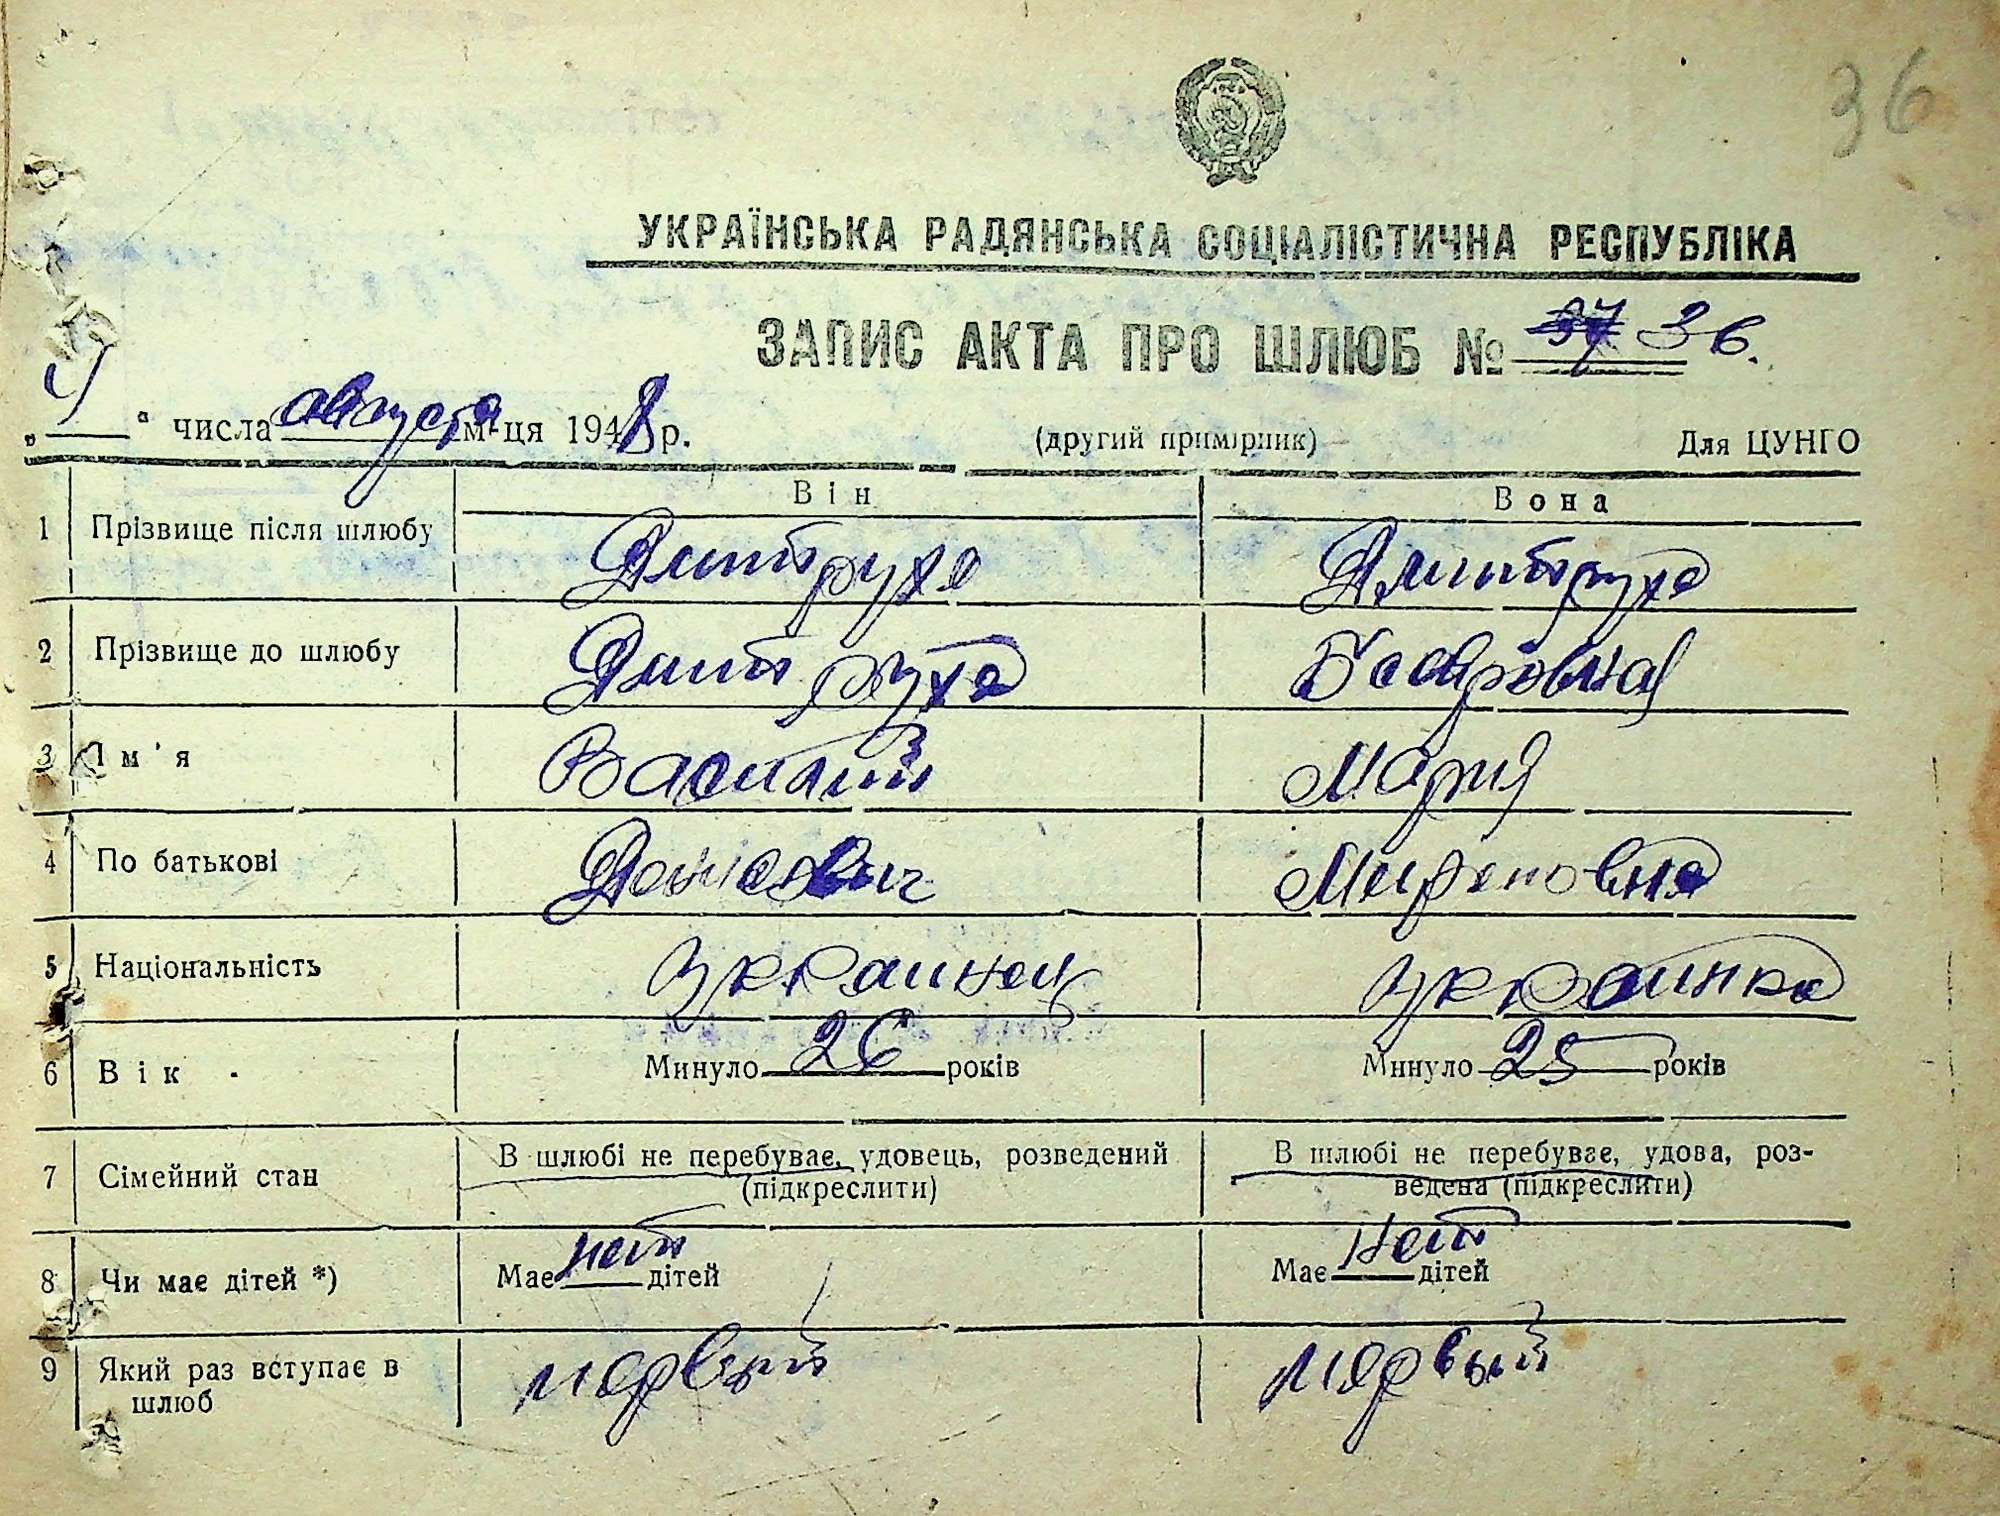 36
УКРАЇНСЬКА РАДЯНСЬКА СОЦІАЛІСТИЧНА РЕСПУБЛІКА
ЗАПИС АКТА ПРО ШЛЮБ № 37 36.
„4“ числа августа м-ця 1948 р. (другий примірник) Для ЦУНГО
Він Вона
1 Прізвище після шлюбу Дмитруха Дмитруха
2 Прізвище до шлюбу Дмитруха
3 Ім'я Василий Мария
4 По батькові Денисович Мироновна
5 Національність Украинец Украинка
6 Вік Минуло 26 років Минуло 25 років
7 Сімейний стан В шлюбі не перебуває, удовець, розведений (підкреслити) В шлюбі не перебуває, удова, розведена (підкреслити)
8 Чи має дітей *) Має нет дітей Має нет дітей
9 Який раз вступає в шлюб первый первый